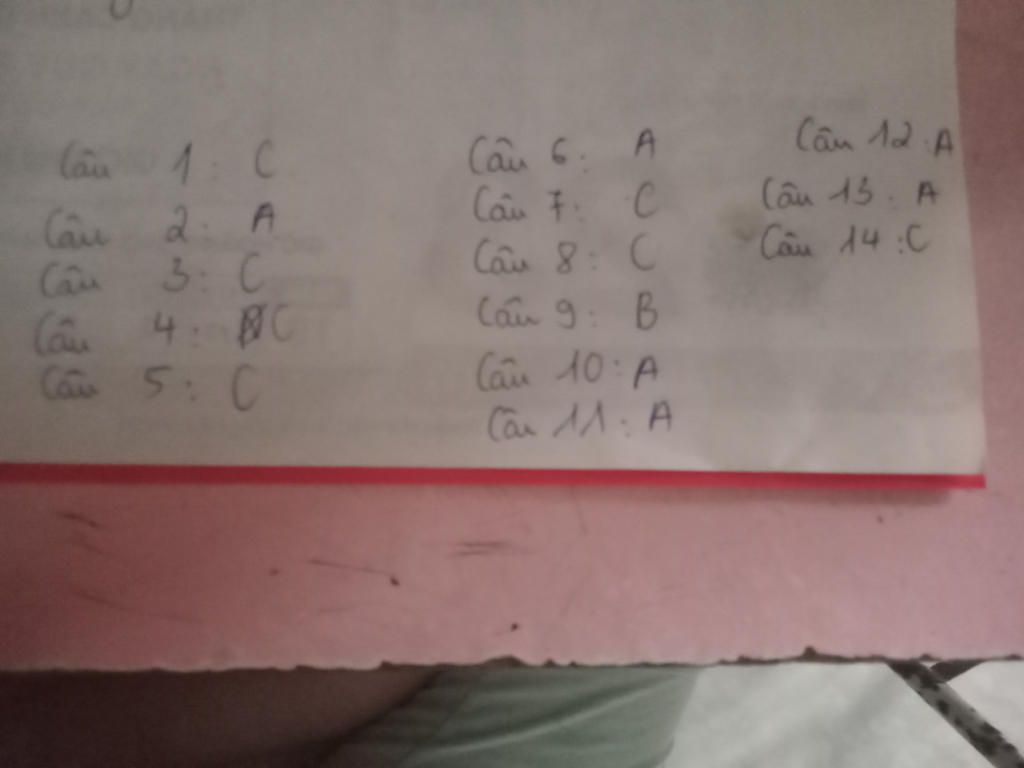 Câu 1: C
Câu 2: A
Câu 3: C
Câu 4: C
Câu 5: C
Câu 6: A
Câu 7: C
Câu 8: C
Câu 9: B
Câu 10: A
Câu 11: A
Câu 12: A
Câu 13: A
Câu 14: C